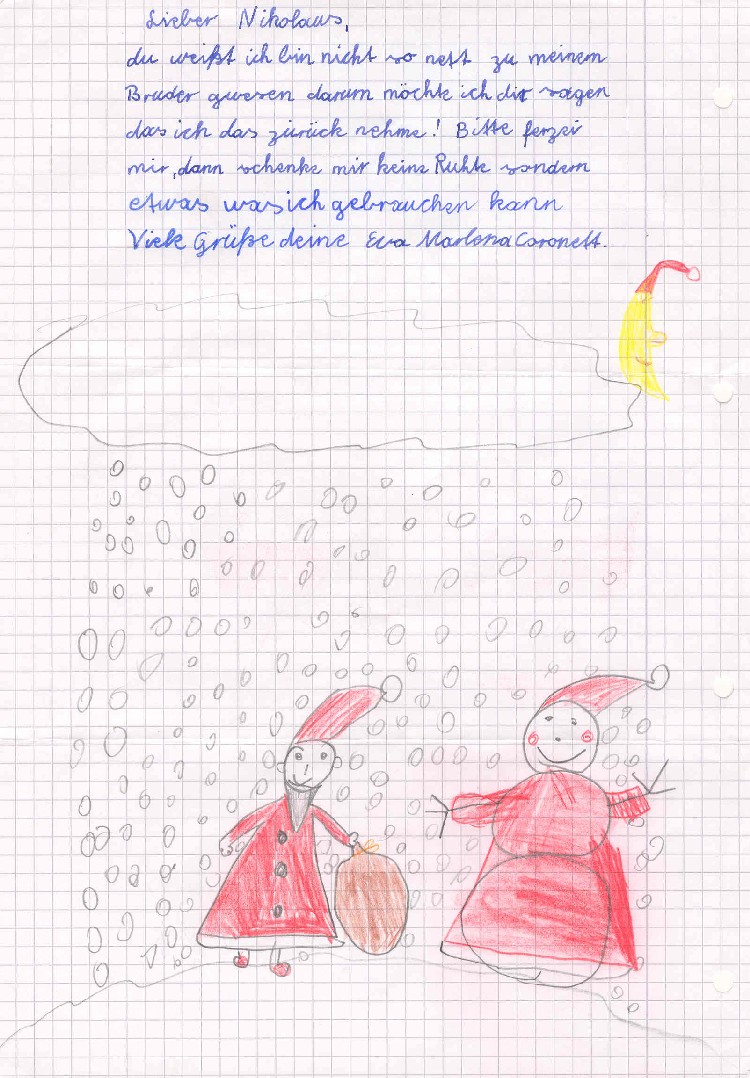 Lieber Nikolaus,
du weißt ich bin nicht so nett zu meinem
Bruder gwesen darum möchte ich dir sagen
das ich das zürück nehme! Bitte ferzei
mir, dann schenke mir keine Ruhte sondern
etwas was ich gebrauchen kann
Viele Grüße deine Eva Marlena Coronett.